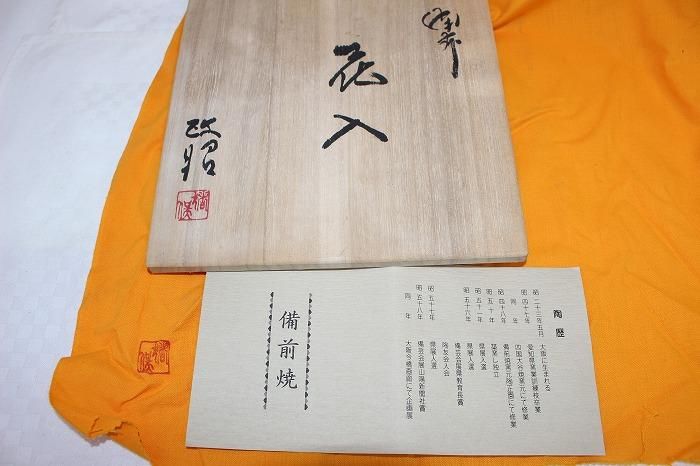 備前
花入
政昭
陶歴
昭 二十三年五月 大阪に生まれる
昭 四十七年 愛知県窯業訓練校卒業
同 年 四国大谷焼窯元にて修業
昭 四十八年 備前焼窯元陶正園にて修業
昭 五十年 築窯し独立
昭 五十一年 県展入選
昭 五十六年 備芸会展県教育長賞
陶友会入会
昭 五十七年 県展入選
昭 五十八年 備芸会展山陽新聞社賞
同 年 大阪今橋画廊にて企画展
備前焼